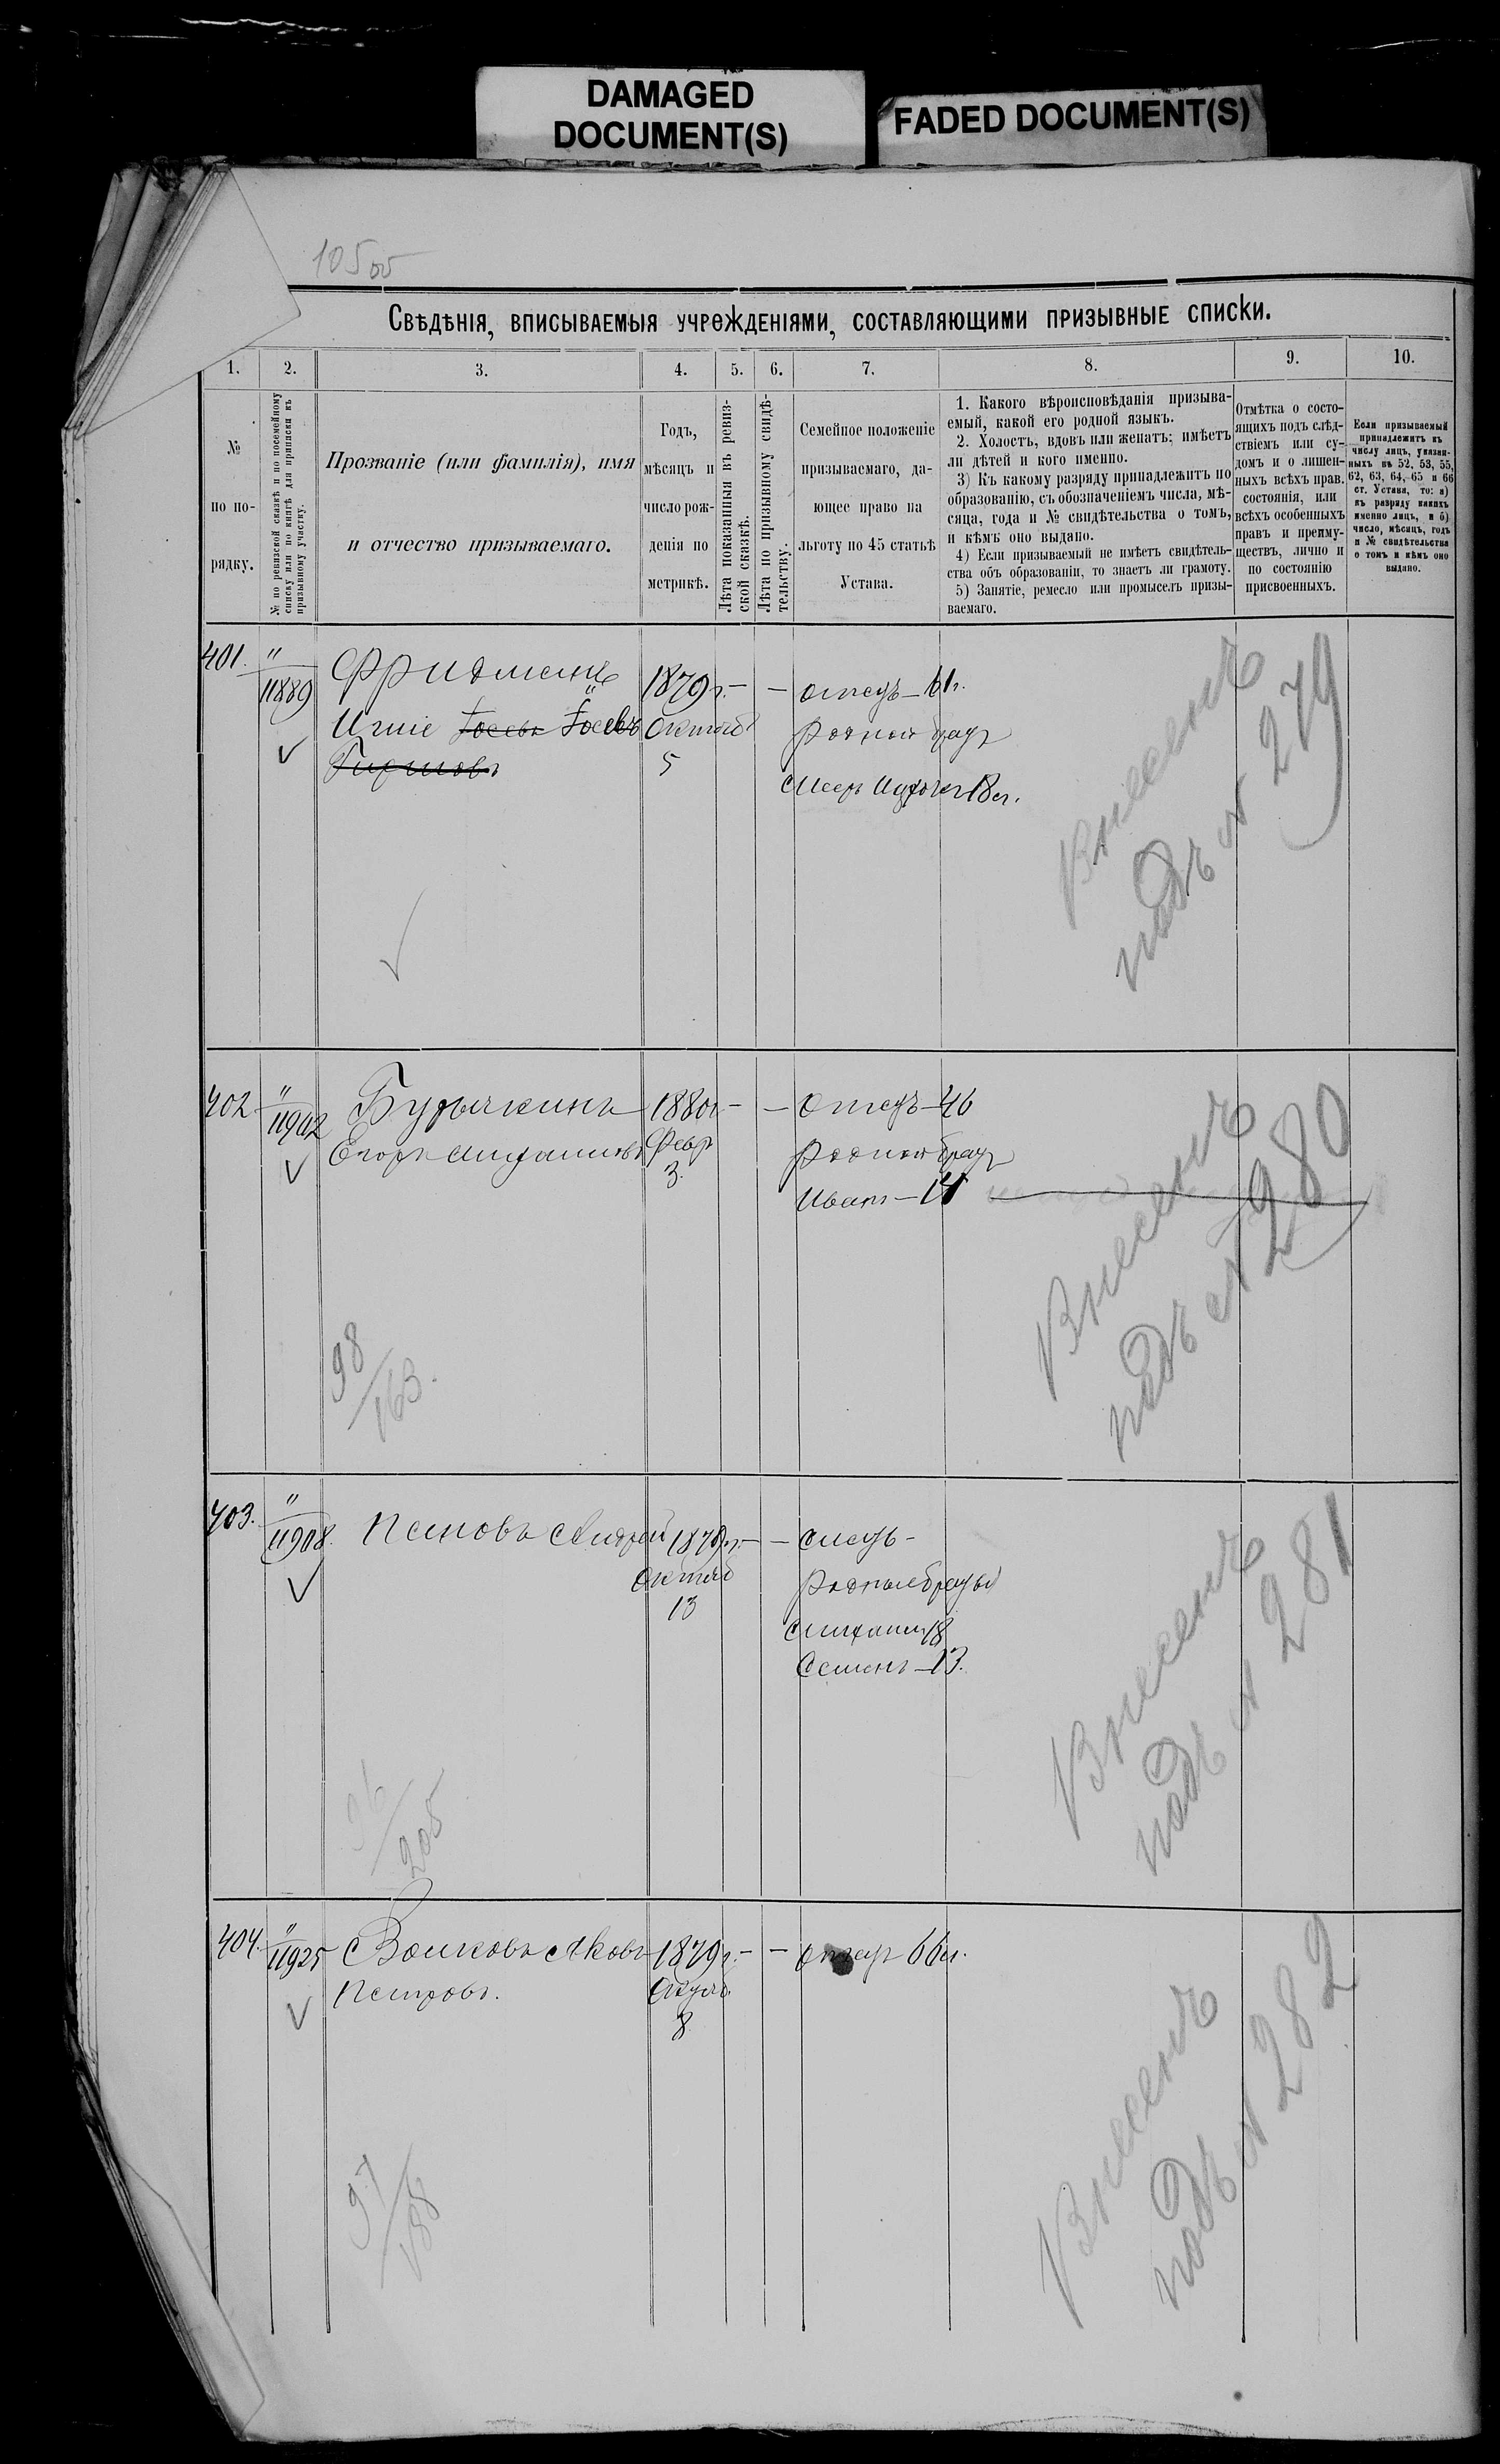 DAMAGED
DOCUMENT(S)
FADED DOCUMENT(S)
Свѣдѣнія, вписываемыя учрежденіями, составляющими призывные списки.
1.
2.
3.
4.
5.
6.
7.
8.
9.
10.
№
по по-
рядку.
№ по ревизской сказкѣ и по посемейному
списку или по книгѣ для приписки къ
призывному участку.
Прозваніе (или фамилія), имя
и отчество призываемаго.
Годъ,
мѣсяцъ и
число рож-
денія по
метрикѣ.
Лѣта показанныя въ ревиз-
ской сказкѣ.
Лѣта по призывному свидѣ-
тельству.
Семейное положеніе
призываемаго, да-
ющее право на
льготу по 45 статьѣ
Устава.
1. Какого вѣроисповѣданія призыва-
емый, какой его родной языкъ.
2. Холостъ, вдовъ или женатъ; имѣетъ
ли дѣтей и кого именно.
3) Къ какому разряду принадлежитъ по
образованію, съ обозначеніемъ числа, мѣ-
сяца, года и № свидѣтельства о томъ,
и кѣмъ оно выдано.
4) Если призываемый не имѣетъ свидѣтель-
ства объ образованіи, то знаетъ ли грамоту.
5) Занятіе, ремесло или промыселъ призы-
ваемаго.
Отмѣтка о состо-
ящихъ подъ слѣд-
ствіемъ или су-
домъ и о лишен-
ныхъ всѣхъ прав.
состоянія, или
всѣхъ особенныхъ
правъ и преиму-
ществъ, лично и
по состоянію
присвоенныхъ.
Если призываемый
принадлежитъ къ
числу лицъ, указан-
ныхъ въ 52, 53, 55,
62, 63, 64, 65 и 66
ст. Устава, то: а)
къ разряду какихъ
именно лицъ, и б)
число, мѣсяцъ, годъ
и № свидѣтельства
о томъ и кѣмъ оно
выдано.
401.
"
11889
Фридманъ
1879 г.
Октяб
5
отецъ – 61 г.
Родной братъ
18 л.
Внесенъ
подъ № 279
402
"
11902
Егоръ
1880 г.
Февр
3.
Отецъ – 46
Родной братъ
Иванъ – 14
Внесенъ
подъ № 280
98
163.
403.
"
11908.
Пановъ Андрей
1879 г.
Октяб
13
отецъ –
Родные братья
18
Семенъ – 13.
Внесенъ
подъ № 281
96
205
404.
"
11925
Волковъ Яковъ
Петровъ.
1879 г.
8.
отецъ 66 л.
Внесенъ
подъ № 282
97
188